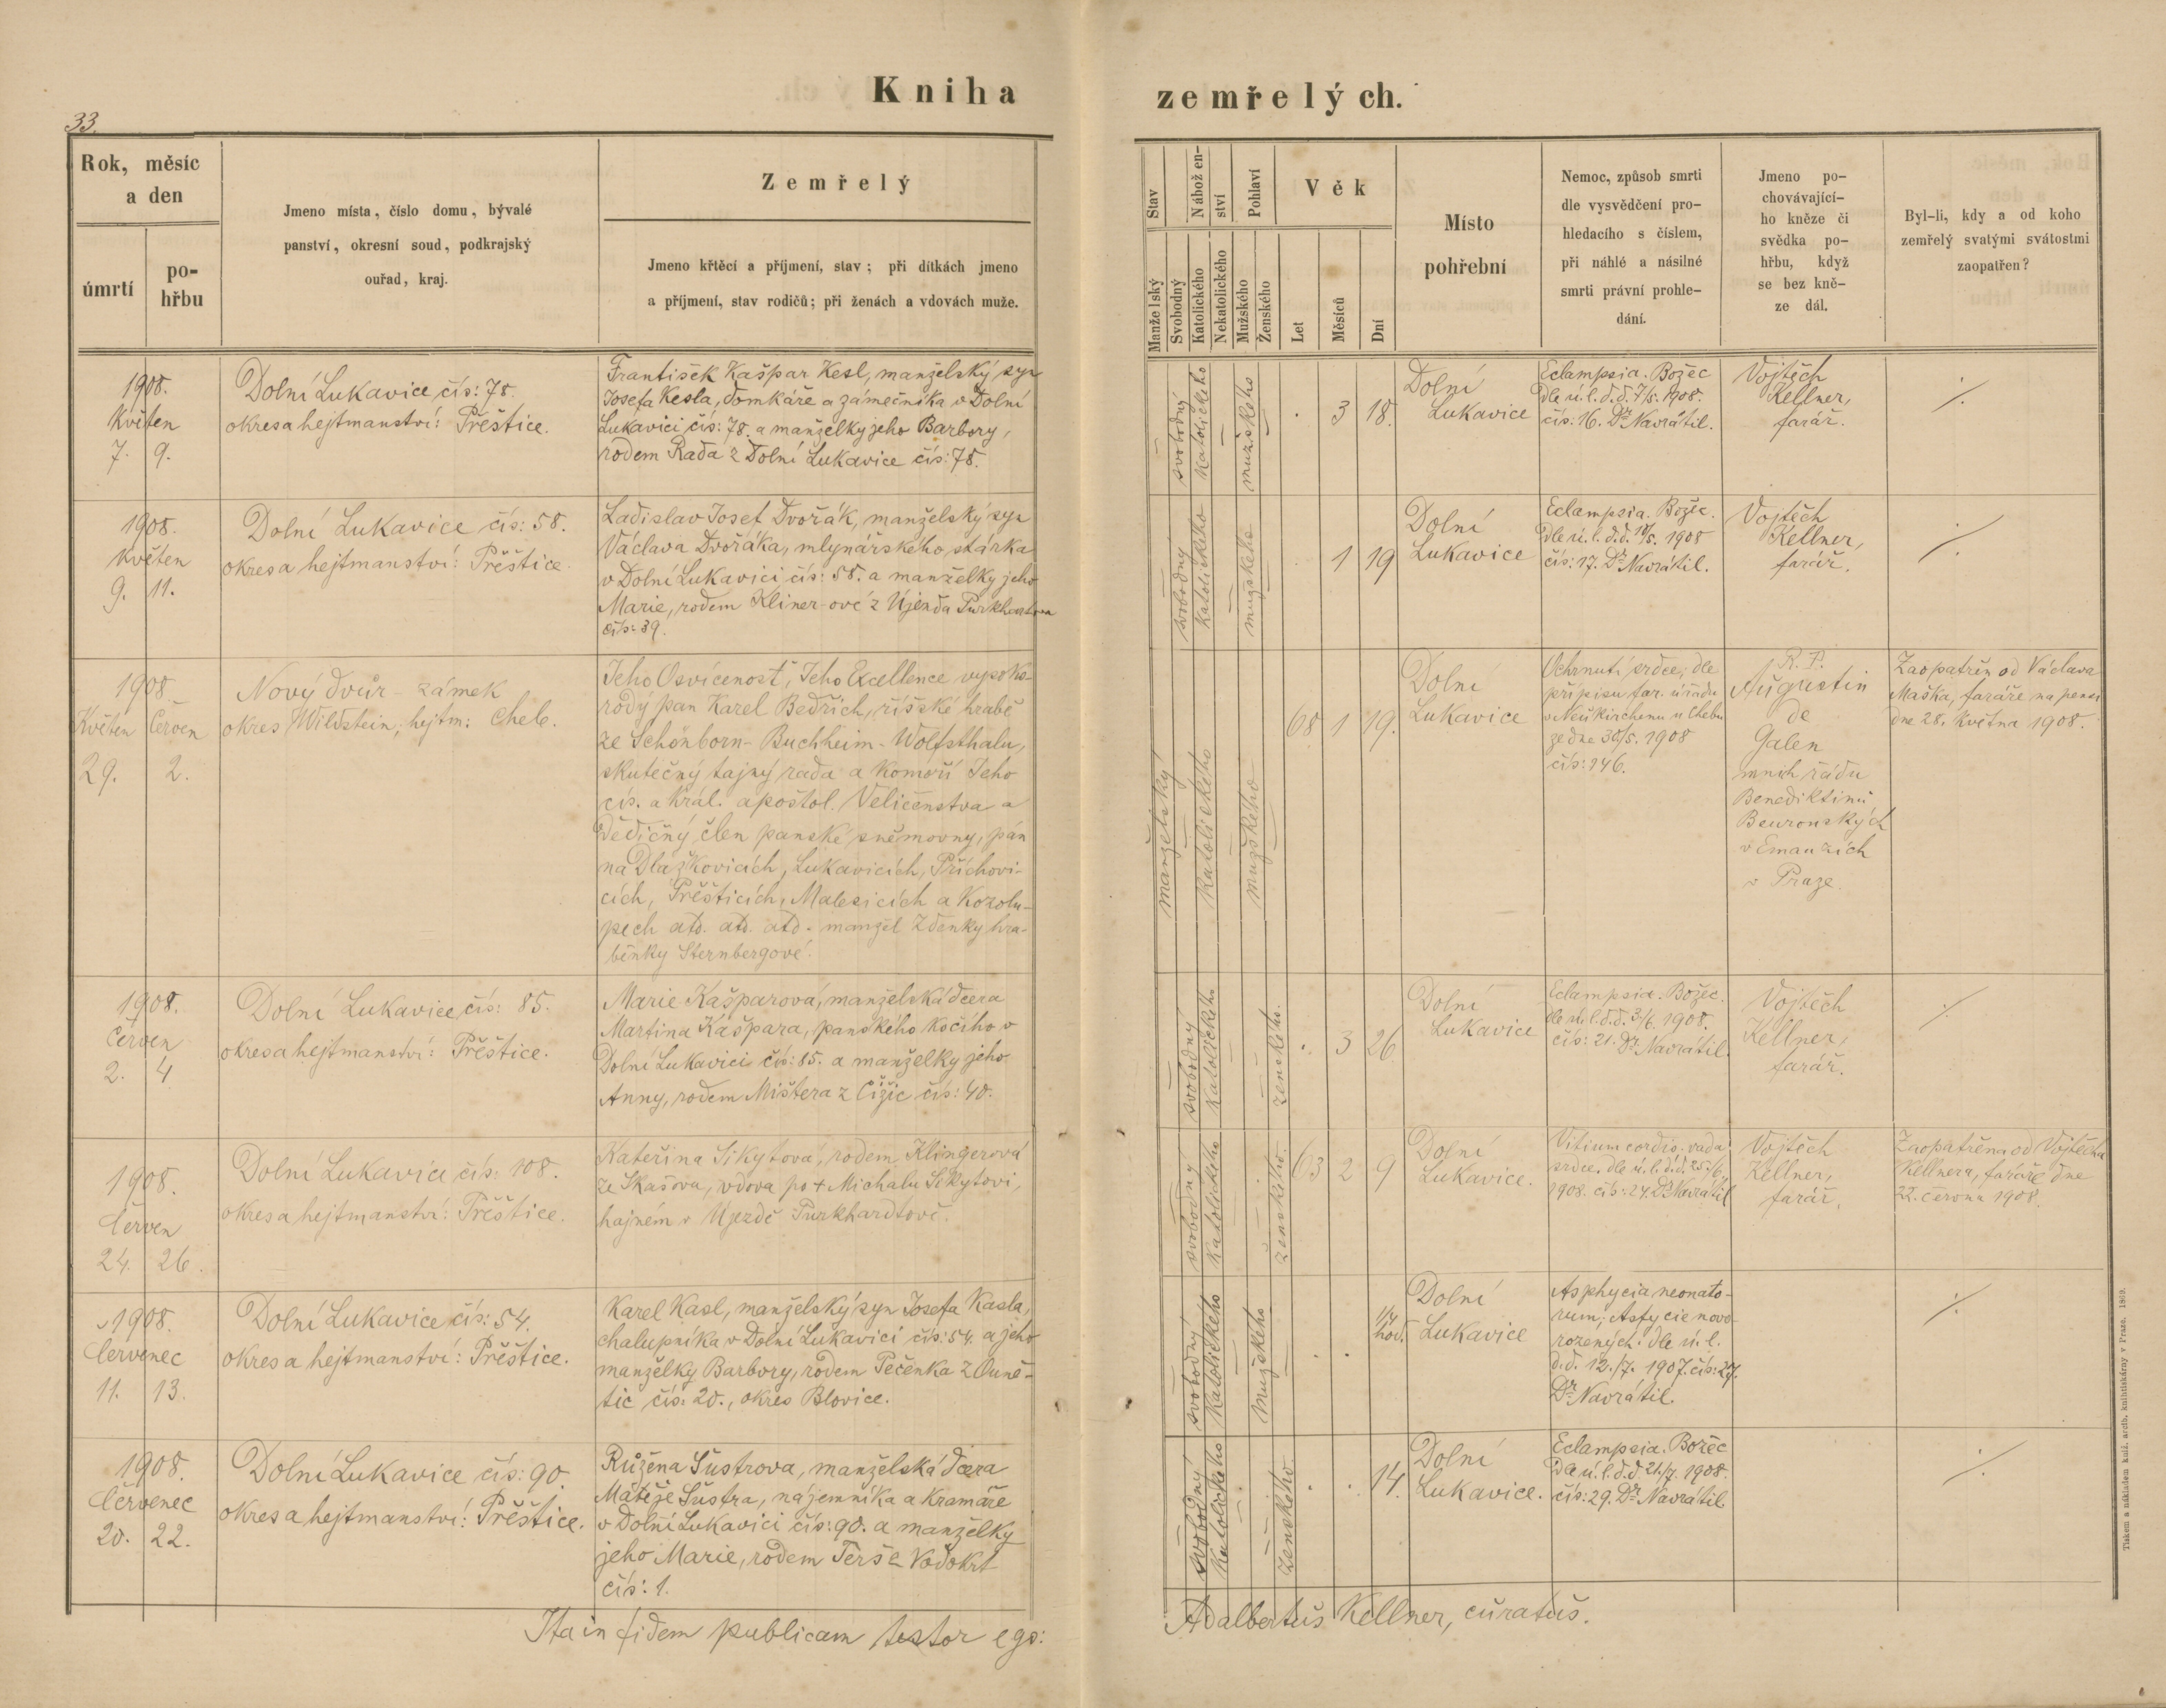 33.
Kniha zemřelých.
Rok, měsíc
a den
úmrtí
po-
hřbu
Jmeno místa, číslo domu, bývalé
panství, okresní soud, podkrajský
ouřad, kraj.
Zemřelý
Jmeno křtěcí a příjmení, stav; při dítkách jmeno
a příjmení, stav rodičů; při ženách a vdovách muže.
Stav
Manželský
Svobodný
Nábožen-
ství
Katolického
Nekatolického
Pohlaví
Mužského
Ženského
Věk
Let
Měsíců
Dní
Místo
pohřební
Nemoc, způsob smrti
dle vysvědčení pro-
hledacího s číslem,
při náhlé a násilné
smrti právní prohle-
dání.
Jmeno po-
chovávající-
ho kněze či
svědka po-
hřbu, když
se bez kně-
ze dál.
Byl-li, kdy a od koho
zemřelý svatými svátostmi
zaopatřen?
1908.
Květen
7. 9.
Dolní Lukavice, čís: 78.
okres a hejtmanství: Přeštice.
František Kašpar Kesl, manželský syn
Josefa Kesla, domkáře a zámečníka v Dolní
Lukavici čís: 78. a manželky jeho Barbory,
rodem Rada z Dolní Lukavice čís: 78.
svobodný
Katolického
mužského
. 3 18.
Dolní
Lukavice
Eclampsia. Božec
dle ú. l. d. d. 7/5. 1908.
čís: 16. Dr Navrátil.
Vojtěch
Kellner,
farář.
./.
1908.
Květen
9. 11.
Dolní Lukavice čís: 58.
okres a hejtmanství: Přeštice.
Ladislav Josef Dvořák, manželský syn
Václava Dvořáka, mlynářského stárka
v Dolní Lukavici čís: 58. a manželky jeho
Marie, rodem Kliner-ové z Újezda Purkhartova
čís: 39.
svobodný
Katolického
mužského
. 1 19
Dolní
Lukavice
Eclampsia. Božec.
Dle ú. l. d. d. 10/5. 1908
čís: 17. Dr Navrátil.
Vojtěch
Kellner,
farář.
./.
1908.
Květen Červen
29. 2.
Nový dvůr - zámek
okres Wildstein, hejtm: Cheb.
Jeho Osvícenost, Jeho Excellence vysoko-
rodý pan Karel Bedřich, říšské hrabě
ze Schönborn-Buchheim-Wolfsthalu,
skutečný tajný rada a komoří Jeho
cís. a král. apoštol. Veličenstva a
dědičný člen panské sněmovny, pán
na Dlažkovicích, Lukavicích, Příchovi-
cích, Přešticích, Malesicích a Kozolu-
pech atd. atd. atd. manžel Zdenky hra-
běnky Sternbergové.
manželský
Katolického
mužského
68 1 19.
Dolní
Lukavice
Ochrnutí srdce, dle
přípisu far. úřadu
v Neukirchenu u Chebu
ze dne 30/5. 1908
čís: 146.
R. P.
Augustin
de
Galen
mnich řádu
Benediktinů
Beuronských
v Emauzích
v Praze.
Zaopatřen od Václava
Maška, faráře na pensi
dne 28. května 1908.
1908.
Červen
2. 4
Dolní Lukavice, čís: 85.
okres a hejtmanství: Přeštice.
Marie Kašparová, manželská dcera
Martina Kašpara, panského kočího v
Dolní Lukavici čís: 85. a manželky jeho
Anny, rodem Mištera z Čižic čís: 40.
svobodný
Katolického
ženského.
. 3 26.
Dolní
Lukavice
Eclampsia. Božec.
dle ú. l. d. d. 3/6. 1908.
čís: 21. Dr Navrátil.
Vojtěch
Kellner,
farář.
./.
1908.
Červen
24. 26.
Dolní Lukavice čís: 108.
okres a hejtmanství: Přeštice.
Kateřina Sikytová, rodem Klingerová
ze Skašova, vdova po + Michalu Sikytovi,
hajném v Újezdě Purkhardtově.
svobodný
Katolického
ženského.
63 2 9
Dolní
Lukavice.
Vitium cordis. vada
srdce, dle ú. l. d. d. 25/6.
1908. čís: 24. Dr Navrátil
Vojtěch
Kellner,
farář.
Zaopatřena od Vojtěcha
Kellnera, faráře dne
22. června 1908.
1908.
Červenec
11. 13.
Dolní Lukavice čís: 54.
okres a hejtmanství: Přeštice.
Karel Kasl, manželský syn Josefa Kasla,
chalupníka v Dolní Lukavici čís: 54. a jeho
manželky Barbory, rodem Pečenka z Ouně-
tic čís: 20., okres Blovice.
svobodný
Katolického
mužského
. . 1/4
hod.
Dolní
Lukavice
Asphycia neonato-
rum; Asfycie novo-
rozených. dle ú. l.
d. d. 12./7. 1907. čís: 27.
Dr Navrátil.
./.
1908.
Červenec
20. 22.
Dolní Lukavice čís: 90.
okres a hejtmanství: Přeštice.
Růžena Šustrova, manželská dcera
Matěje Šustra, nájemníka a kramáře
v Dolní Lukavici čís: 90. a manželky
jeho Marie, rodem Terš z Vodokrt
čís: 1.
svobodný
Katolického
ženského
. . 14.
Dolní
Lukavice.
Eclampsia. Božec
Dle ú. l. d. d. 21./7. 1908.
čís: 29. Dr Navrátil.
./.
Ita in fidem publicam testor ego: Adalbertus Kellner, curatus.
Tiskem a nákladem kníž. arcib. knihtiskárny v Praze. 1869.